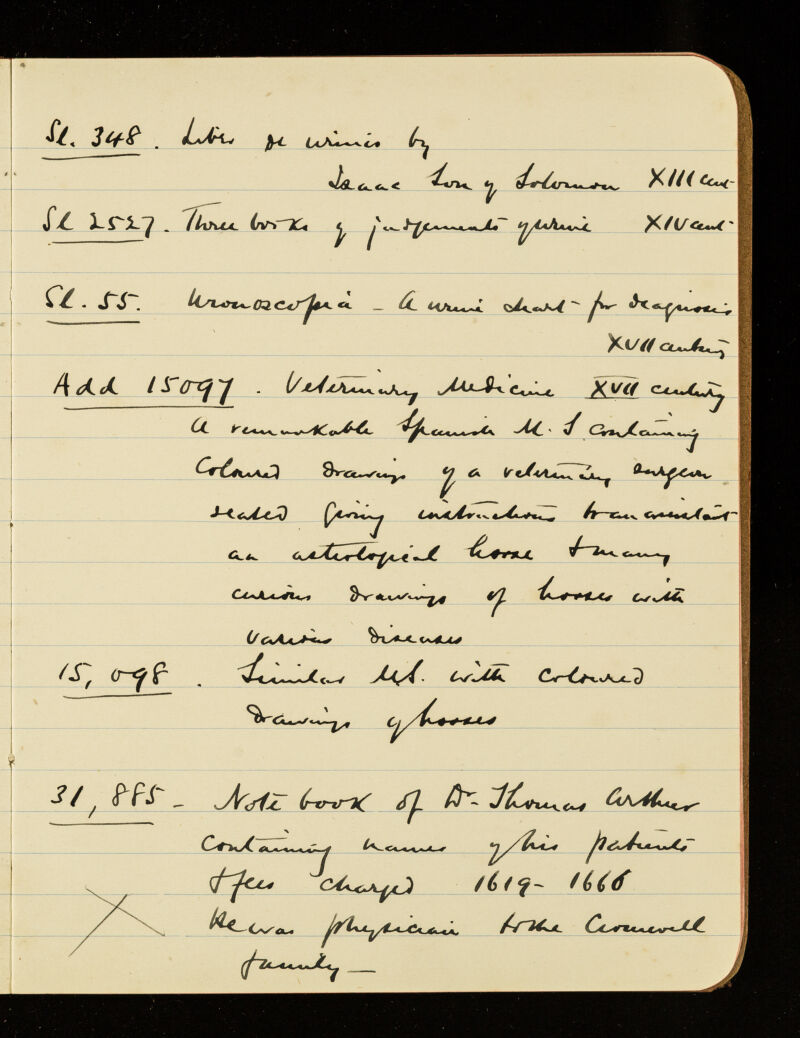 Sl. 348. Liber de urinis by
Isaac Son of Solomon XIII cent
Sl 2527. Three books of judgements of urine XIV cent
Sl. 55. Uronoscopia – A urine chart for diagnosis
XVII century
Add 15097. Veterinary Medicine XVII century
A remarkable Spanish M.S containing
Coloured drawings of a veterinary surgeon
seated giving instructions to an assistant
an astrological horse & many
curious drawings of horses with
various diseases
15,098. Similar MS. with coloured
drawings of horses
31,885 – Note book of Dr. Thomas Arthur
containing names of his patients
& fees charged 1619 – 1666
He was physician to the Cromwell
family –